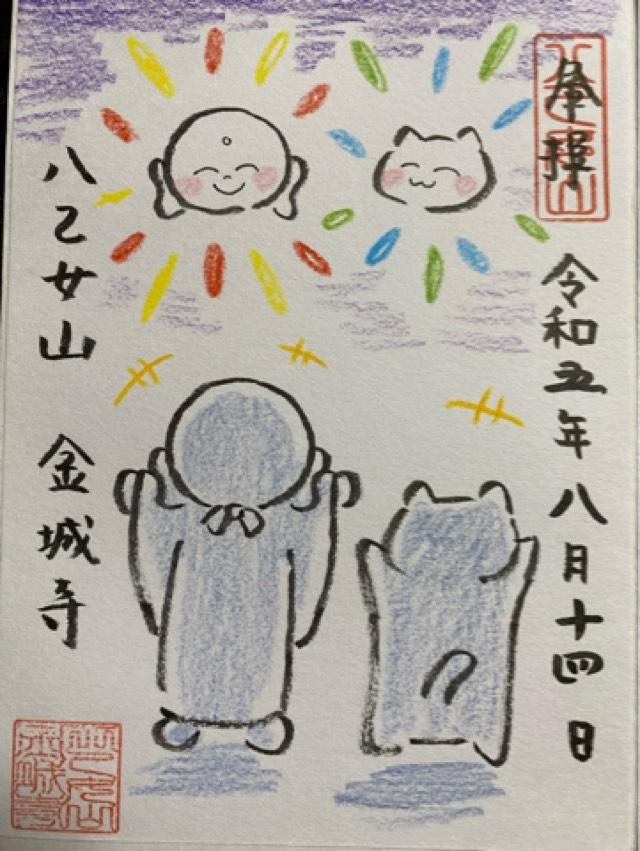 奉拝
令和五年八月十四日
八乙女山 金城寺